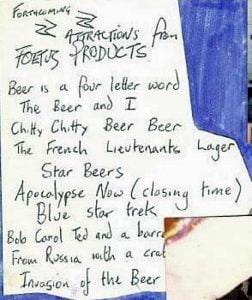 FORTHCOMING
ATTRACTIONS from
FOETUS PRODUCTS
Beer is a four letter word
The Beer and I
Chitty Chitty Beer Beer
The French Lieutenants Lager
Star Beers
Apocalypse Now (closing time)
Blue star trek
Bob Carol Ted and a barre
From Russia with a crat
Invasion of the Beer